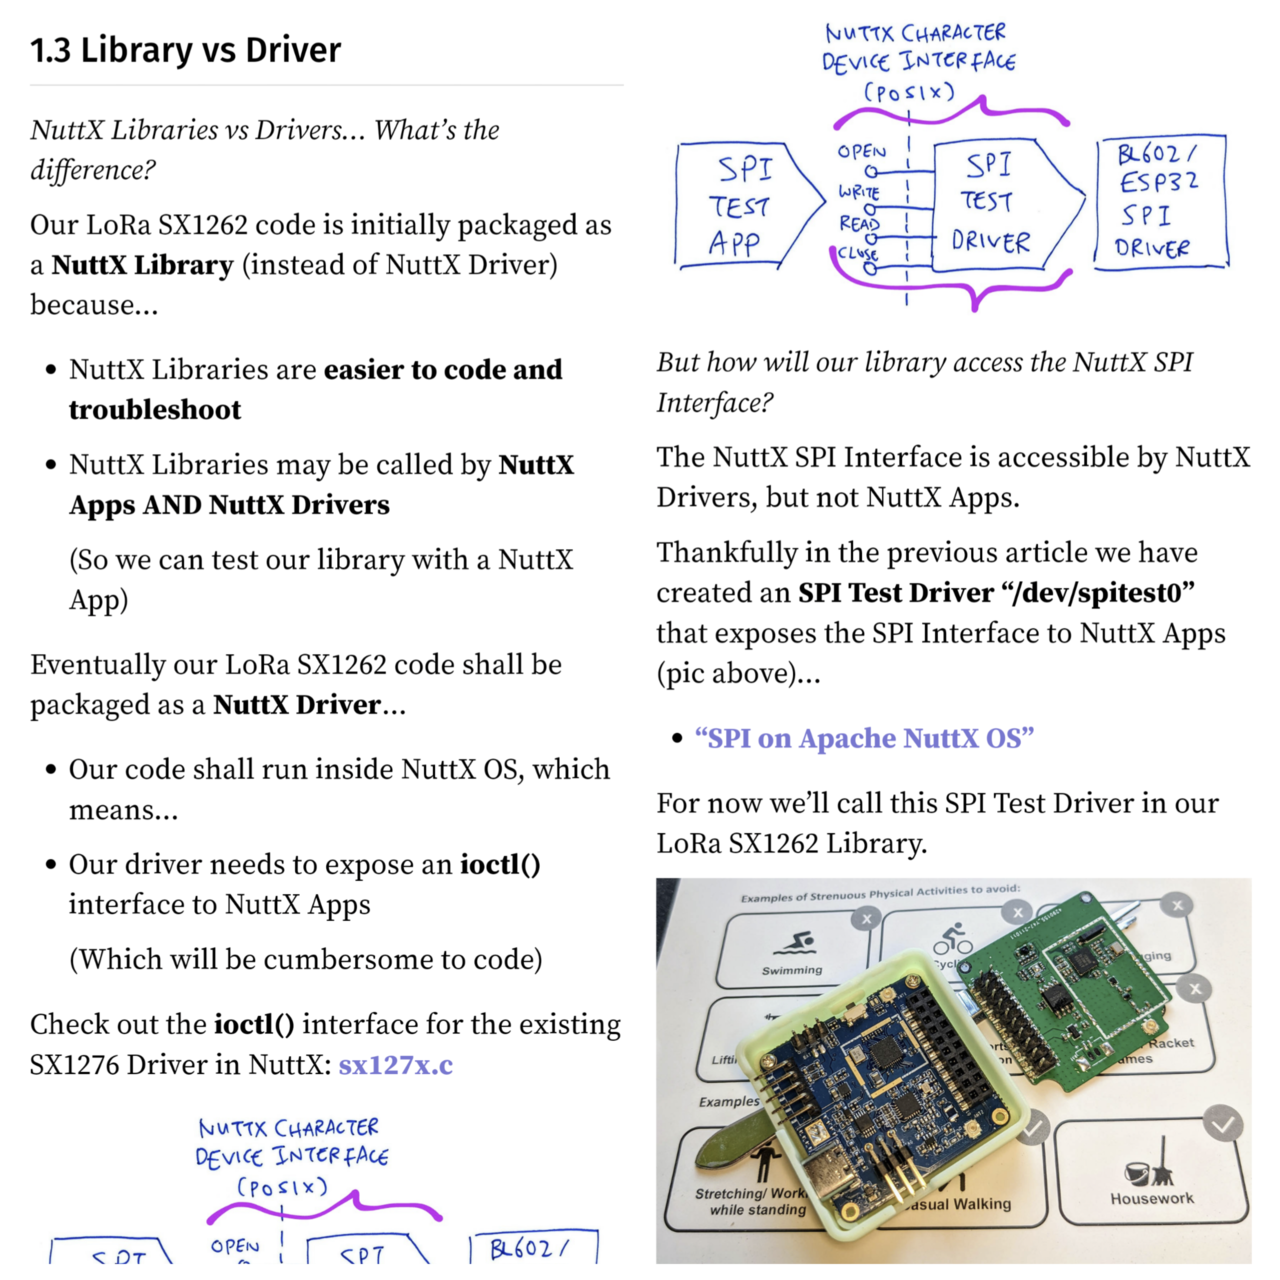 1.3 Library vs Driver
NuttX Libraries vs Drivers… What’s the
difference?
Our LoRa SX1262 code is initially packaged as
a NuttX Library (instead of NuttX Driver)
because…
• NuttX Libraries are easier to code and
troubleshoot
• NuttX Libraries may be called by NuttX
Apps AND NuttX Drivers
(So we can test our library with a NuttX
App)
Eventually our LoRa SX1262 code shall be
packaged as a NuttX Driver…
• Our code shall run inside NuttX OS, which
means…
• Our driver needs to expose an ioctl()
interface to NuttX Apps
(Which will be cumbersome to code)
Check out the ioctl() interface for the existing
SX1276 Driver in NuttX: sx127x.c
NUTTX CHARACTER
DEVICE INTERFACE
(POSIX)
OPEN
SPI
SPI
BL602/
NUTTX CHARACTER
DEVICE INTERFACE
(POSIX)
SPI
TEST
APP
OPEN
WRITE
READ
CLOSE
SPI
TEST
DRIVER
BL602/
ESP32
SPI
DRIVER
But how will our library access the NuttX SPI
Interface?
The NuttX SPI Interface is accessible by NuttX
Drivers, but not NuttX Apps.
Thankfully in the previous article we have
created an SPI Test Driver “/dev/spitest0”
that exposes the SPI Interface to NuttX Apps
(pic above)…
• “SPI on Apache NuttX OS”
For now we’ll call this SPI Test Driver in our
LoRa SX1262 Library.
Examples of Strenuous Physical Activities to avoid:
Swimming
Racket
Examples
Stretching/ Work
while standing
Walking
Housework